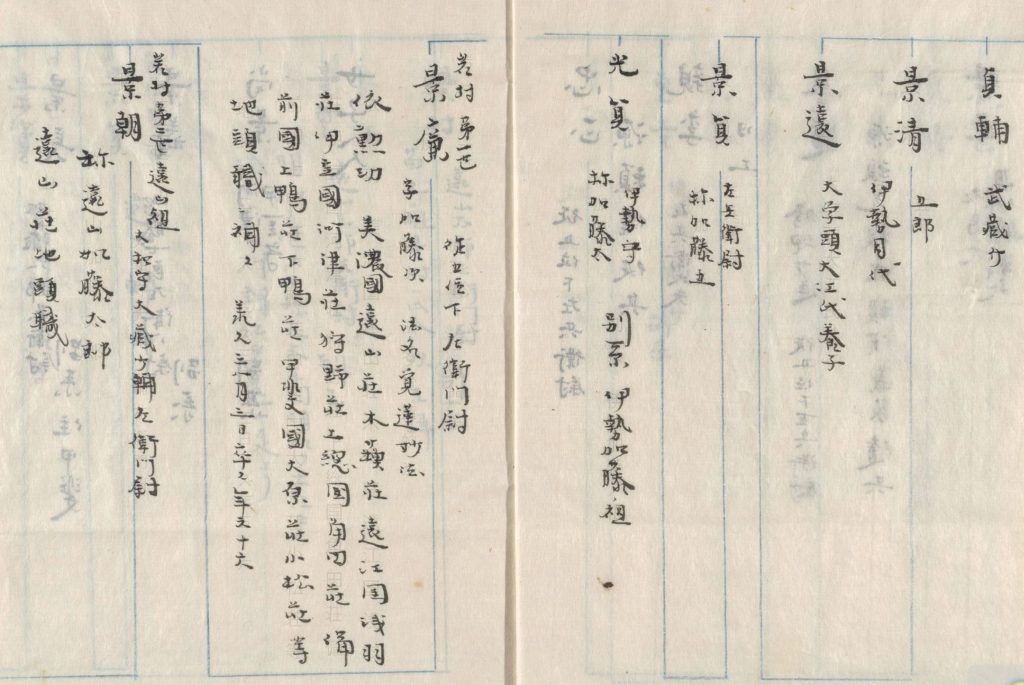 貞輔
武蔵守
景清
五郎
伊勢目代
景遠
大学頭大江氏養子
景貞
左兵衛尉
称加藤五
光貞
伊勢守
称加藤太
別系 伊勢加藤祖
岩村第一世
景廉
従五位下左衛門尉
字加藤次 法名覚蓮妙法
依勲功 美濃國遠山荘木 荘遠江国浅羽
荘伊豆國河津荘狩野荘上総国角田荘備
前國上鴨荘下鴨荘甲斐國大原荘小松荘等
地頭職補之 承久三 月三日卒之年六十六
岩村第二世遠山組
景朝
大和守大蔵少輔左衛門尉
称遠山加藤太郎
遠山荘地頭職